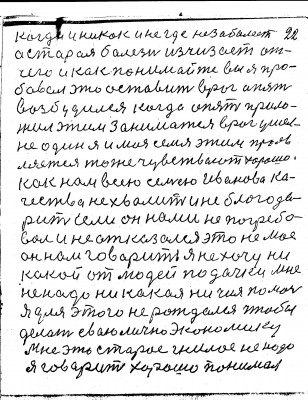 когда и никак и негде незаболеет 22
а старая балезн изчизает от
чего и как понимайте вы я про-
бовал это оставит врог опят
возбудился когда опят прило-
жил этим заниматся врог ушел
не один я и моя семя этим прояв
ляется тоже чувствают хорошо.
как нам всею семею Иванова ка-
чества не хвалит и не благода-
рит если он нами не погребо-
вал и не отказался это не мое
он нам говорить я не хочу ни
какой от людей подачки мне
ненадо ни какая ни чия помоч
я для этого не рождался чтобы
делат сваю лично экономику
мне это старое гнилое не надо
я говорить хорошо понимал